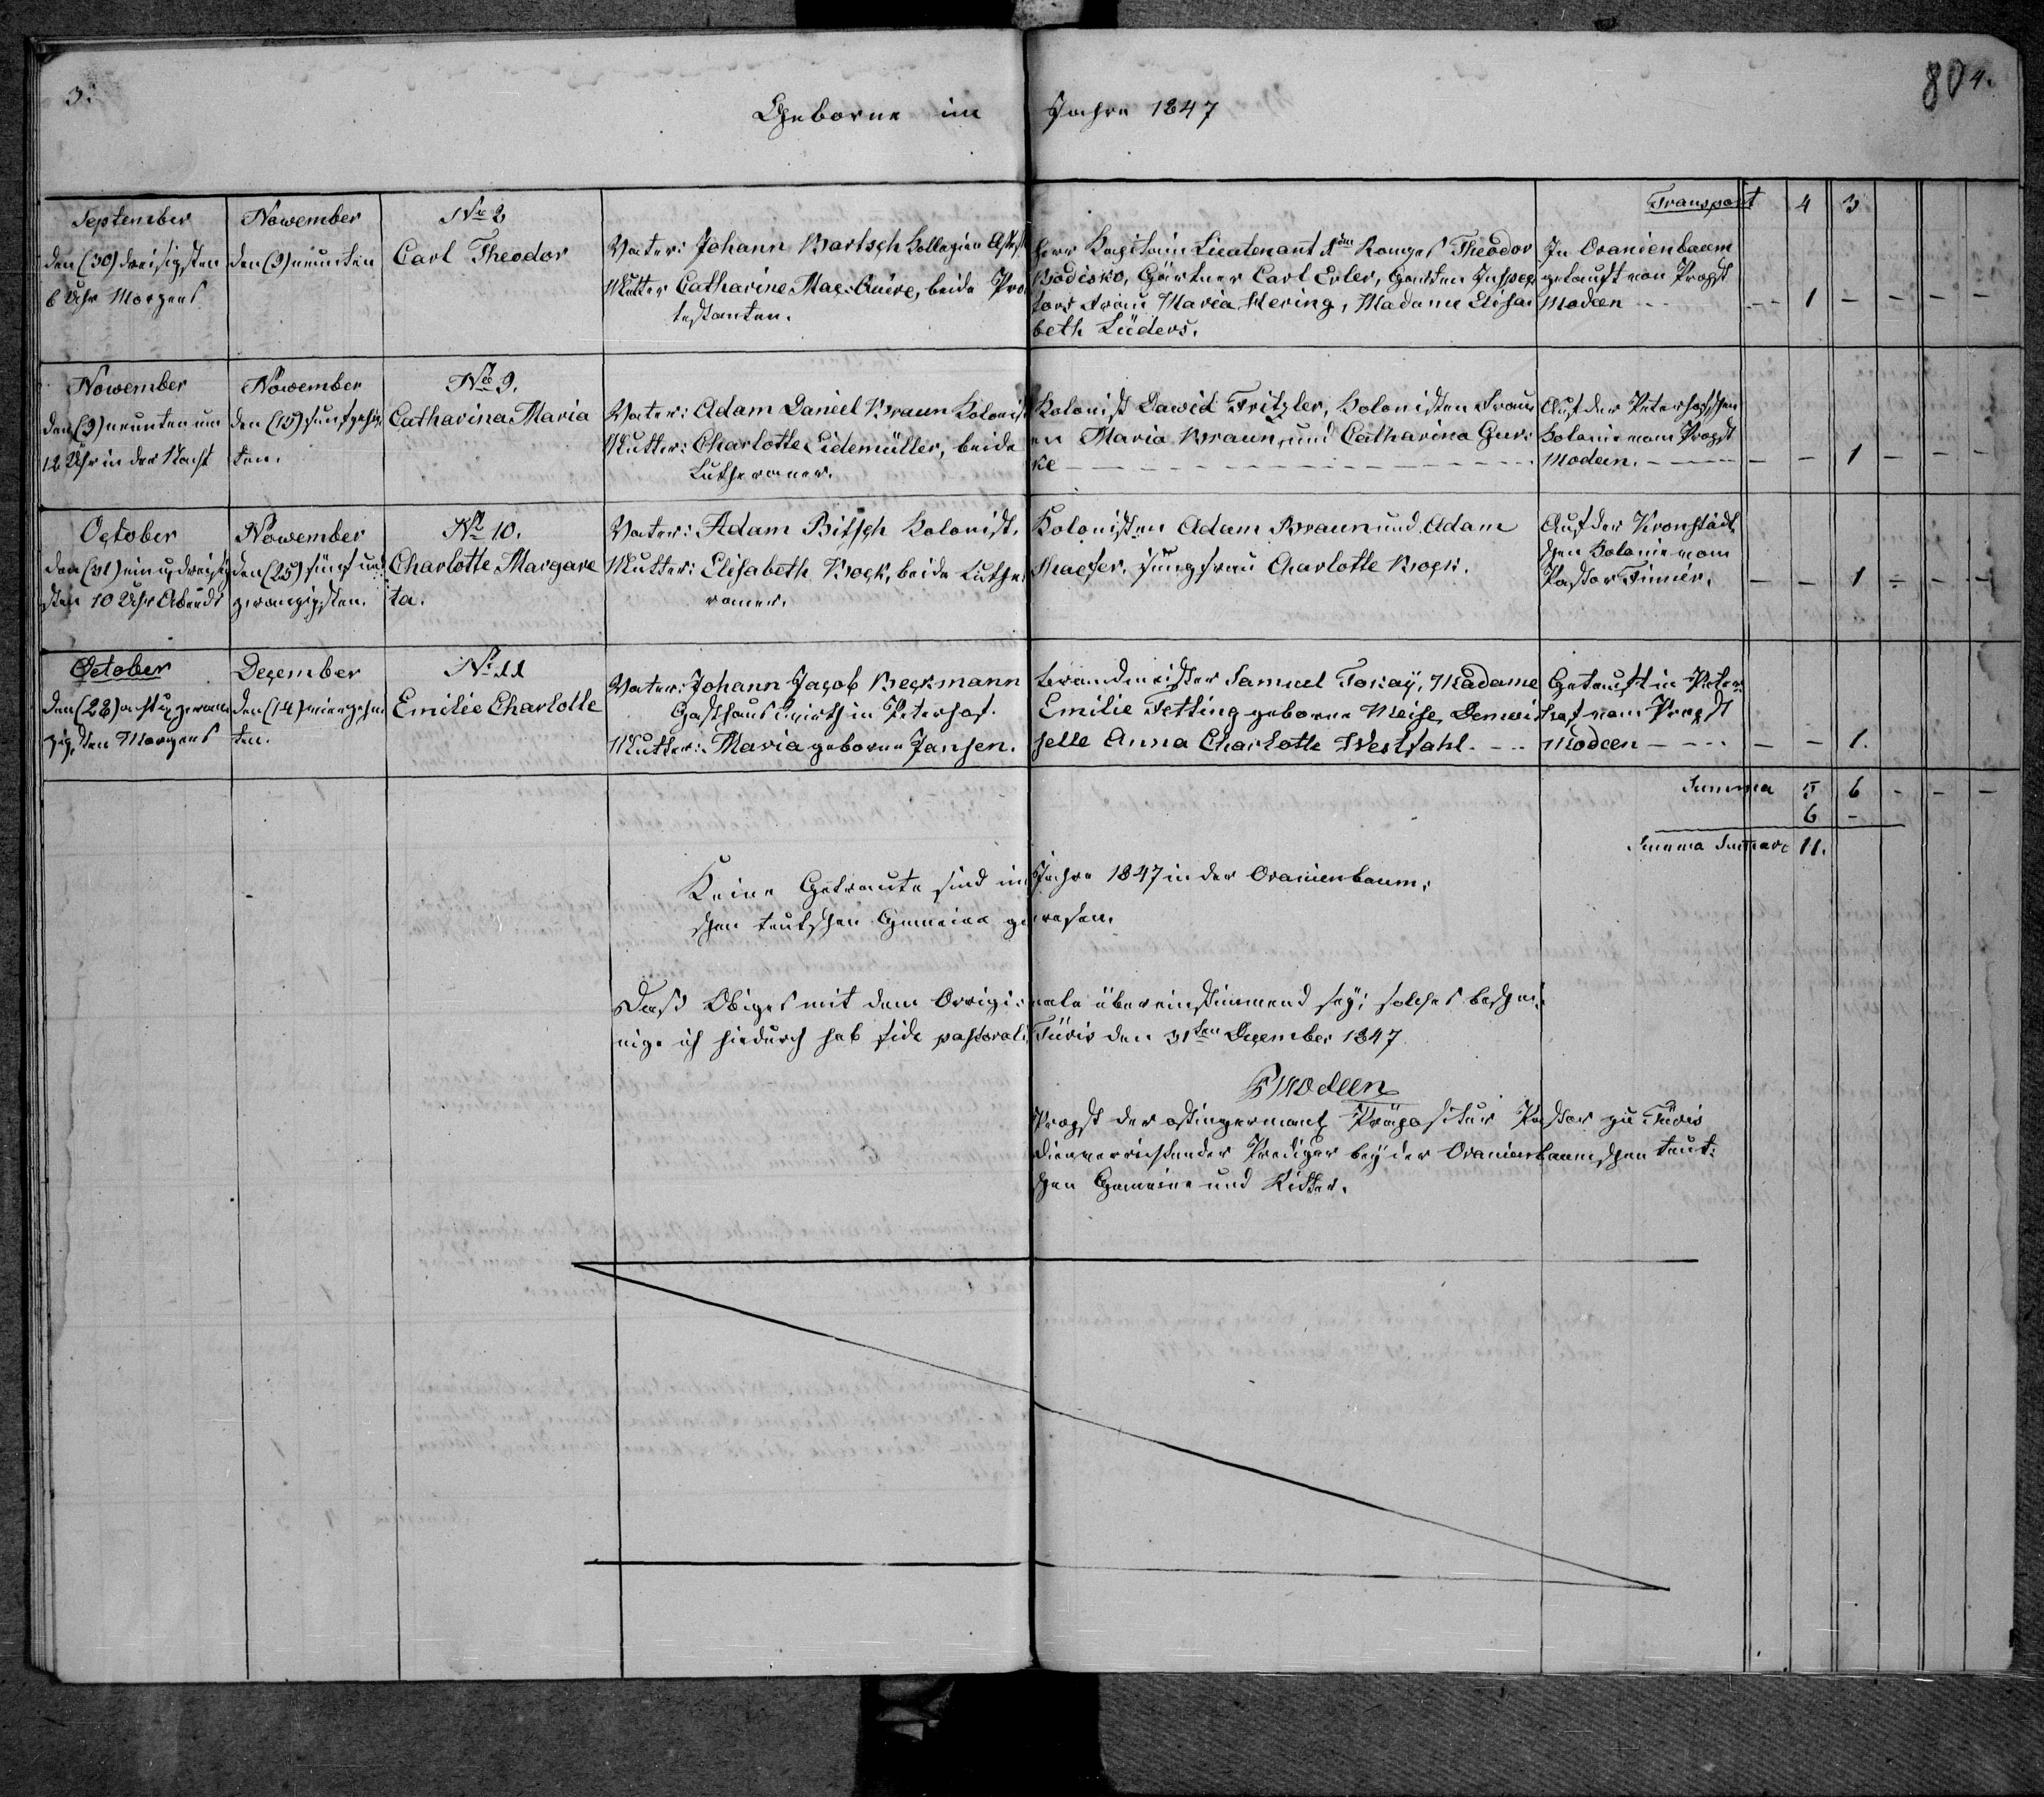 3.
804.
Geborne im Jahre 1847
Transport 4 3
September
den (30) dreisigsten
6 Uhr Morgens
November
den (9) neunten
No 8
Carl Theodor
Vater: Johann Bartsch Kollegien Assess
Mutter Catharine Mac-Quire, beide Pro
testanten.
Herr Kapitain Lieutenant 1ten Ranges Theodor
Bodisko, Gärtner Carl Erler, Garten Inspec
tors Frau Maria Hering, Madame Elisa
beth Lüders.
In Oranienbaum
getauft von Propst
Modeen - - -
- - 1 - - - -
November
den (9) neunten um
12 Uhr in der Nacht
November
den (15) funfzehn
ten.
No 9.
Catharina Maria
Vater: Adam Daniel Braun Kolonist
Mutter: Charlotte Eidemüller, beide
Lutheraner.
Kolonist Dawid Fritzler, Kolonisten Frau
en Maria Braun, und Catharina Gur-
ke - - -
Auf der Peterhofschen
Kolonie vom Propst
Modeen. - - -
- - 1 - - -
October
den (31) ein u. dreisig
sten 10 Uhr Abends
November
den (25) fünf und
zwanzigsten.
No 10.
Charlotte Margare
ta.
Vater: Adam Bitsch Kolonist.
Mutter: Elisabeth Bock, beide Luthe-
raner.
Kolonisten Adam Braun und Adam
Schaefer, Jungfrau Charlotte Bock.
Auf der Kronstädt
schen Kolonie vom
Pastor Simér.
- - 1 - - -
October
den (28) acht u. zwan
zigsten Morgens
December
den (14) vierzehn
ten.
No 11
Emilie Charlotte
Vater: Johann Jacob Beckmann
Gasthaus Wirth in Peterhof.
Mutter: Maria geborne Jansen.
Brandmeister Samuel Tokaÿ, Madame
Emilie Tetting geborne Meise, Demoi
selle Anna Charlotte Westfahl. - -
Getauft in Peter-
hof vom Propst
Modeen - - -
- - 1.
Summa 5 6 - - -
6 -
Summa Summar: 11.
Keine Getraute sind im Jahre 1847 in der Oranienbaum-
schen teutschen Gemeine gewesen.
Dass Obiges mit dem Origi-nale übereinstimmend sey; solches beschei-
nige ich hiedurch sub fide pastorali. Türis den 31ten December 1847
Modeen
Propst der ostingermanl. Präpositur Pastor zu Türis
dienverrichtender Prediger bey der Oranienbaumschen teut-
schen Gemeine und Ritter.